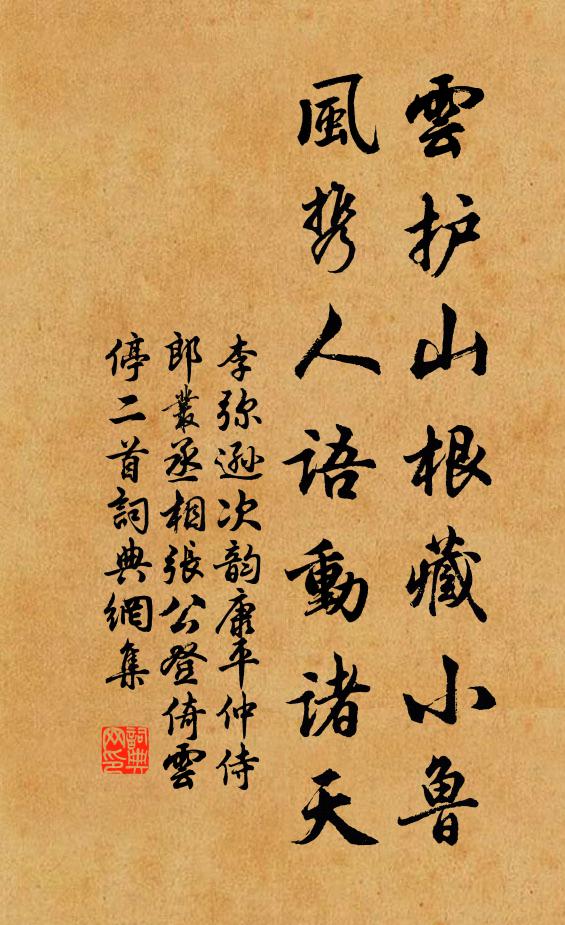 雲护山根藏小鲁
風携人语動诸天
李弥遜次韵康平仲侍
郎叢丞相張公登倚雲
停二首詞典網集
詞典网印